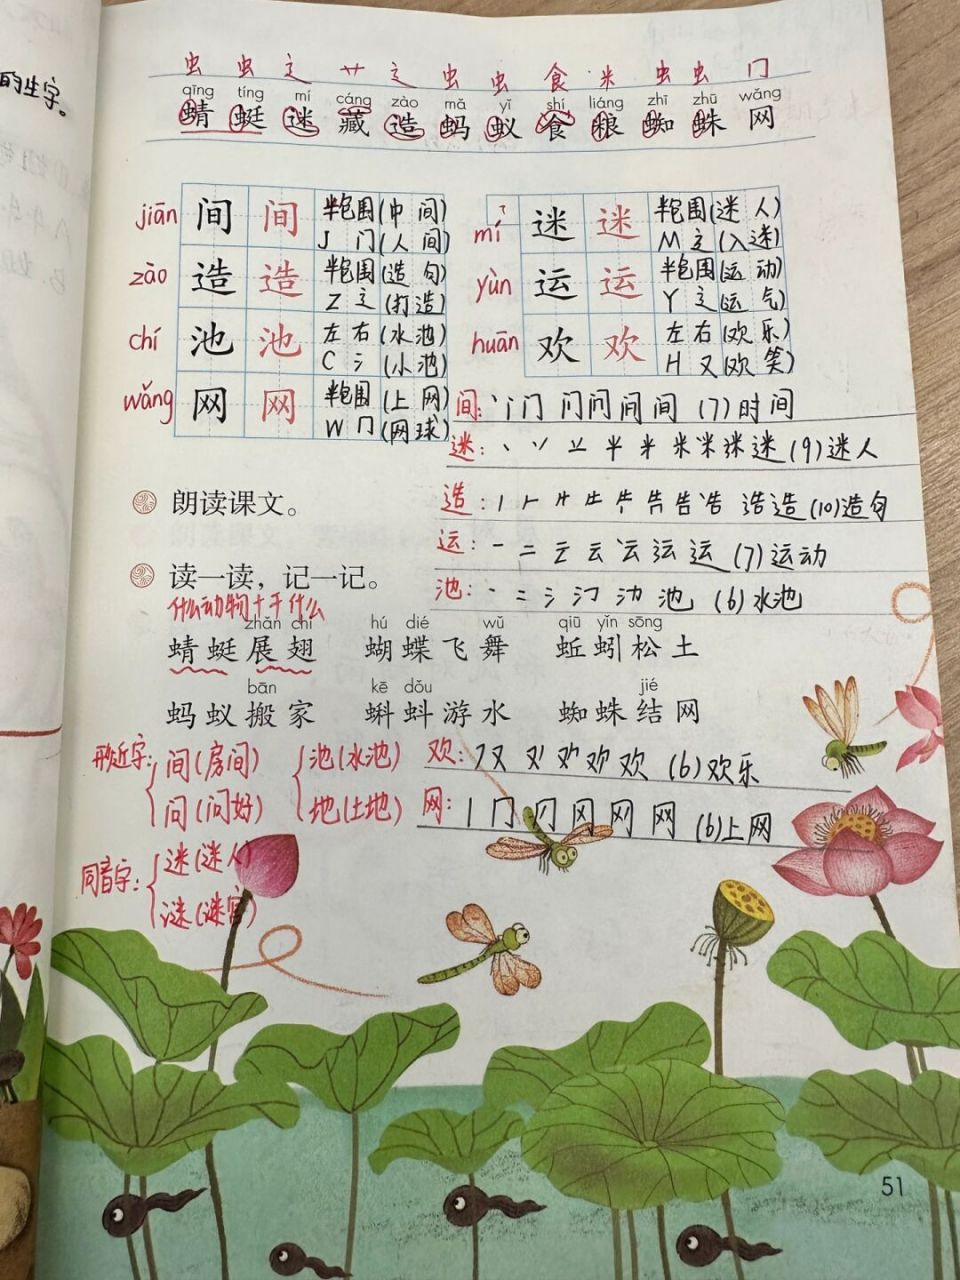 的生字。
虫 虫 辶 艹 辶 虫 虫 食 米 虫 虫 冂
qīng tíng mí cáng zào mǎ yǐ shí liáng zhī zhū wǎng
蜻 蜓 迷 藏 造 蚂 蚁 食 粮 蜘 蛛 网
jiān 间 间 半包围(中 间)
J 门 (人 间)
zào 造 造 半包围(造 句)
Z 辶 (打造)
chí 池 池 左右(水池)
C 氵 (小池)
wǎng 网 网 半包围(上 网)
W 冂 (网球)
mí 迷 迷 半包围(迷 人)
M 辶 (入迷)
yùn 运 运 半包围(运 动)
Y 辶 (运 气)
huān 欢 欢 左右(欢 乐)
H 又 (欢 笑)
间: (7)时间
迷: (9)迷人
造: (10)造句
运: (7)运动
池: (6)水池
朗读课文。
读一读，记一记。
什么动物+干什么
zhǎn chì hú dié wǔ qiū yǐn sōng
蜻蜓展翅 蝴蝶飞舞 蚯蚓松土
bān kē dǒu jié
蚂蚁搬家 蝌蚪游水 蜘蛛结网
形近字: 间(房间) 池(水池)
问(问好) 地(土地)
欢: (6)欢乐
网: (6)上网
同音字: 迷(迷人)
谜(谜宫)
51